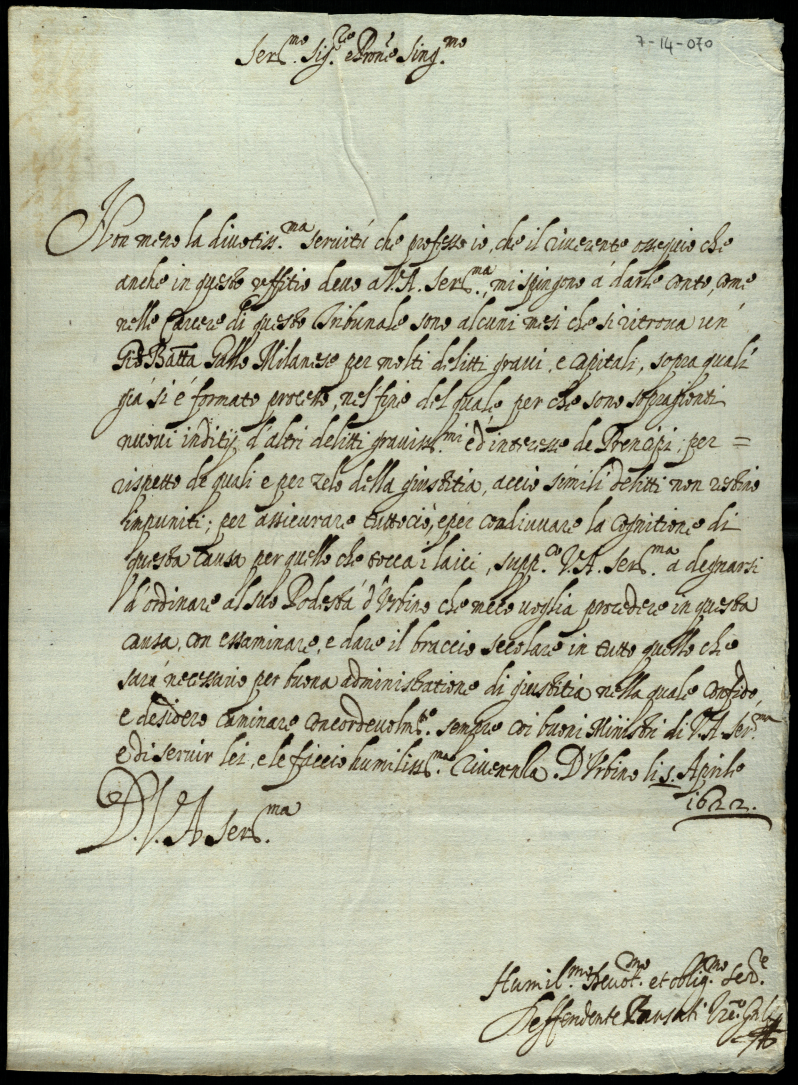 7-14-070
Ser.mo Sig.re e Pron.e Sing.mo
Non meno la divotiss.ma servitù che professo io, che il riverente ossequio che
anche in questo uffitio devo a V.A. Ser.ma, mi spingono à darle conto, come
nelle Carcere di questo Tribunale sono alcuni mesi che si ritrova un'
Gio Batta Gallo Milanese per molti delitti gravi, e capitali, sopra quali
già si é formato processo, nel fine del quale per che sono sopragionti
nuovi inditij d'altri delitti graviss.mi ed interesse de Prencipi; per =
rispetto de quali e per zelo della giustitia, acciò simili delitti non restino
impuniti; per assicurare tuttociò, e per condiuvare la cognitione di
questa causa per quello che tocca i laici, supp.co V.A. Ser.ma a degnarsi
d'ordinare al suo Podestà d'Urbino che meco voglia procedere in questa
causa, con essaminare, e dare il braccio secolare in tutto quello che
sarà necessario per buona administratione di giustitia nella quale confido,
e desidero caminare concordevolm.te sempre coi buoni Ministri di V.A. Ser.ma
e di servir lei, e le faccio humiliss.ma riverenza. D'Urbino li 5. Aprile
1622.
D. V. A Ser.ma
Humil.mo Devot.mo et oblig.mo Ser.e
Deffendente